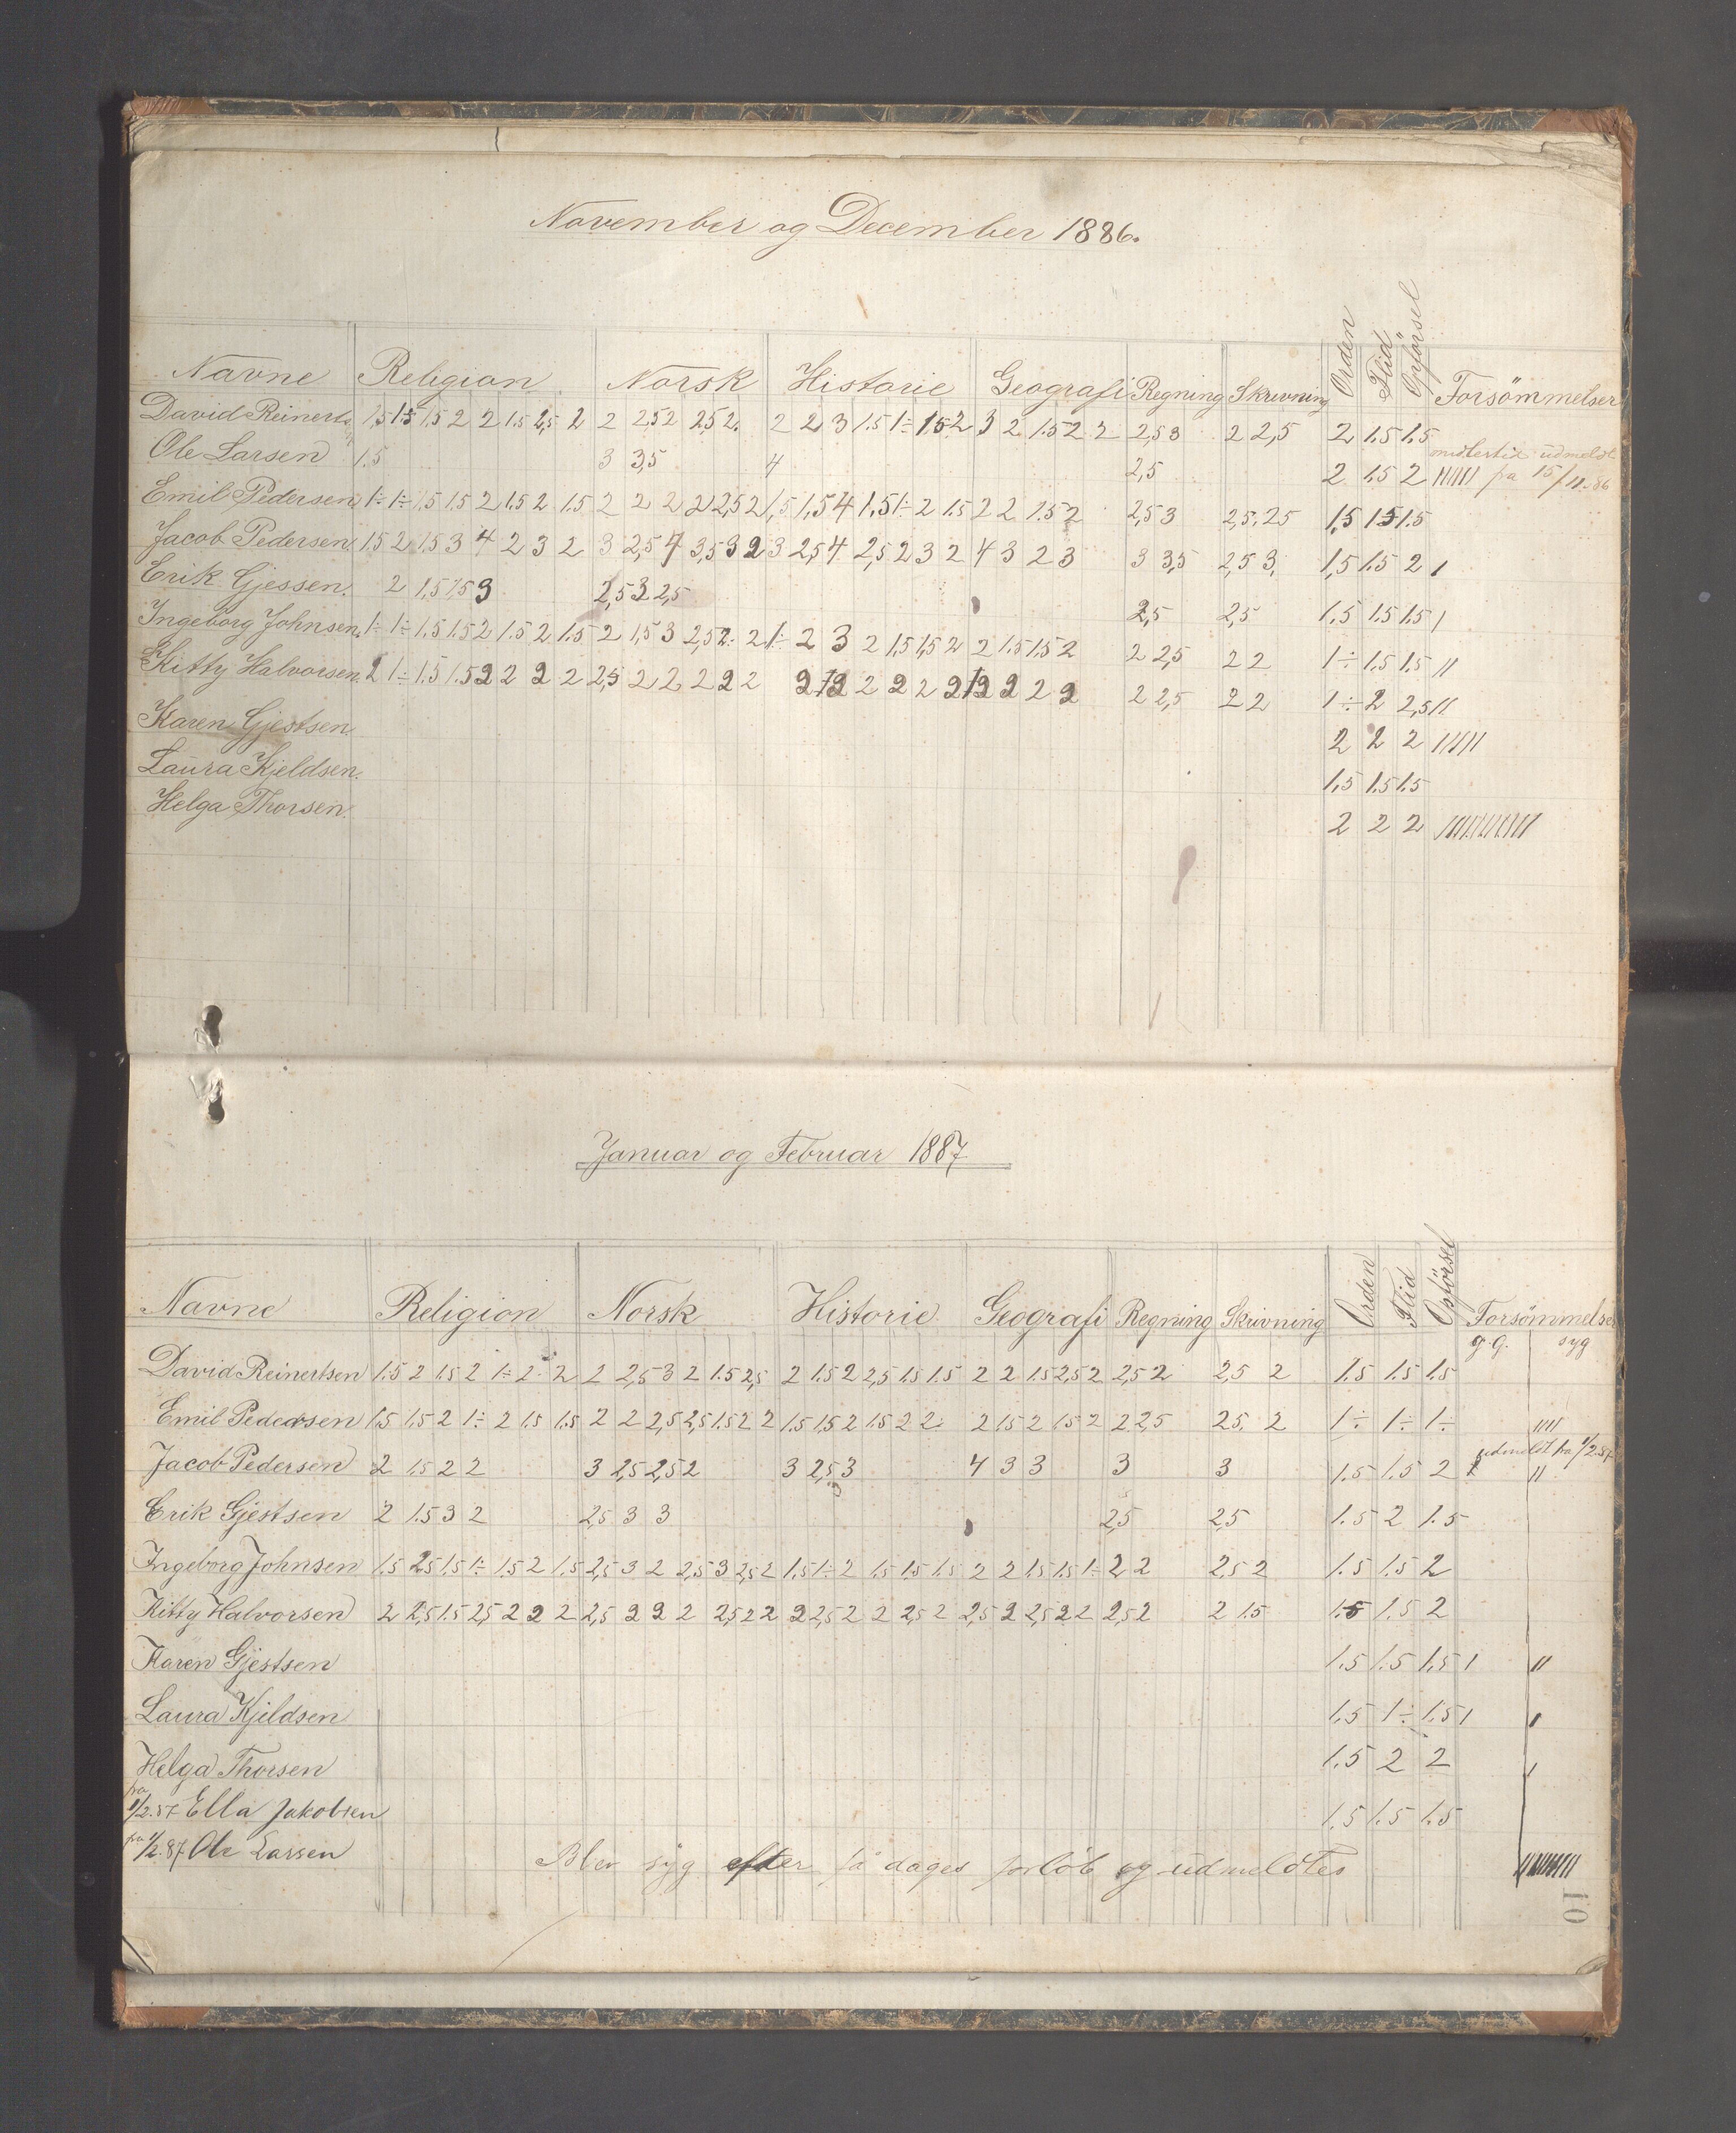 November og December 1886.
Navne Religion Norsk Historie Geografi Regning Skrivning Orden Flid Opförsel Forsömmelser
David Reinerts 1,5 1,5 1,5 2 2 1.5 2,5 2 2 2,5 2 2,5 2. 2 2 3 1.5 1÷ 1,5 2 3 2 1.5 2 2 2,5 3 2 2,5 2 1.5 1.5
Ole Larsen 1.5 3 3,5 4 2,5 2 1.5 2 IIIII udmeldt fra 15/11-86
Emil Pedersen 1÷ 1÷ 1,5 1.5 2 1.5 2 1.5 2 2 2 2 2,5 2 1,5 1,5 4 1,5 1÷ 2 1.5 2 2 1.5 2 2,5 3 2,5. 2,5 1,5 1.5 1.5
Jacob Pedersen 1.5 2 1,5 3 4 2 3 2 3 2,5 4 3,5 3 2 3 2,5 4 2,5 2 3 2 4 3 2 3 3 3,5 2,5 3. 1,5 1.5 2 I
Erik Gjessen. 2 1,5 1,5 3 2,5 3 2,5 2,5 2,5 1.5 1.5 1.5 I
Ingeborg Johnsen. 1÷ 1÷ 1,5 1.5 2 1.5 2 1.5 2 1,5 3 2,5 2. 2 1÷ 2 3 2 1,5 1,5 2 2 1.5 1.5 2 2 2,5 2 2 1÷ 1.5 1.5 II
Kitty Halvorsen. 2 1÷ 1.5 1.5 2 2 2 2 2,5 2 2 2 2 2 2 2 2 2 2 2 2 2 2 2 2 2,5 2 2 1÷ 2 2,5 II
Karen Gjestsen 2 2 2 IIIII
Laura Kjeldsen. 1,5 1.5 1.5
Helga Thorsen. 2 2 2 IIIIIIIIII
Januar og Februar 1887
Navne Religion Norsk Historie Geografi Regning Skrivning Orden Flid Opförsel Forsömmelser
g. G. syg
David Reinertsen 1.5 2 1.5 2 1÷ 2 2 2 2,5 3 2 1.5 2,5 2 1.5 2 2,5 1.5 1.5 2 2 1.5 2,5 2 2,5 2 2,5 2 1.5 1.5 1.5
Emil Pedersen 1,5 1.5 2 1÷ 2 1.5 1.5 2 2 2,5 2,5 1.5 2 2 1.5 1,5 2 1.5 2 2 2 1.5 2 1.5 2 2 2,5 2,5. 2 1÷ 1÷ 1÷ IIII
udmeldt fra 1/2.87
Jacob Pedersen 2 1.5 2 2 3 2,5 2,5 2 3 2,5 3 4 3 3 3 3 1.5 1.5 2 II
Erik Gjestsen 2 1.5 3 2 2,5 3 3 2,5 2,5 1.5 2 1.5
Ingeborg Johnsen 1.5 2,5 1.5 1÷ 1.5 2 1.5 2,5 3 2 2,5 3 2,5 2 1.5 1÷ 2 1.5 1.5 1.5 2 2 1.5 1.5 1÷ 2 2 2,5 2 1.5 1.5 2
Kitty Halvorsen 2 2,5 1.5 2,5 2 2 2 2,5 2 2 2 2,5 2 2 2 2,5 2 2 2,5 2 2,5 2 2,5 2 2 2,5 2 2 1.5 1.5 1.5 2
Karen Gjestsen 1.5 1.5 1.5 I II
Laura Kjeldsen. 1.5 1÷ 1.5 I I
Helga Thorsen 1.5 2 2 I
fra 1/2.87 Ella Jakobsen 1.5 1.5 1.5
fra 1/2.87 Ole Larsen Blev syg efter få dages forlöb og udmeldtes
10